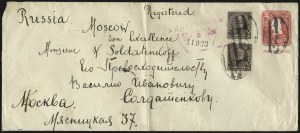 Russia
Registered
Moscow
Son Excellence
Monsieur W. Soldatenkoff
Его Превосходительству
Василию Ивановичу
Солдатенкову
Москва.
Мясницкая 37.